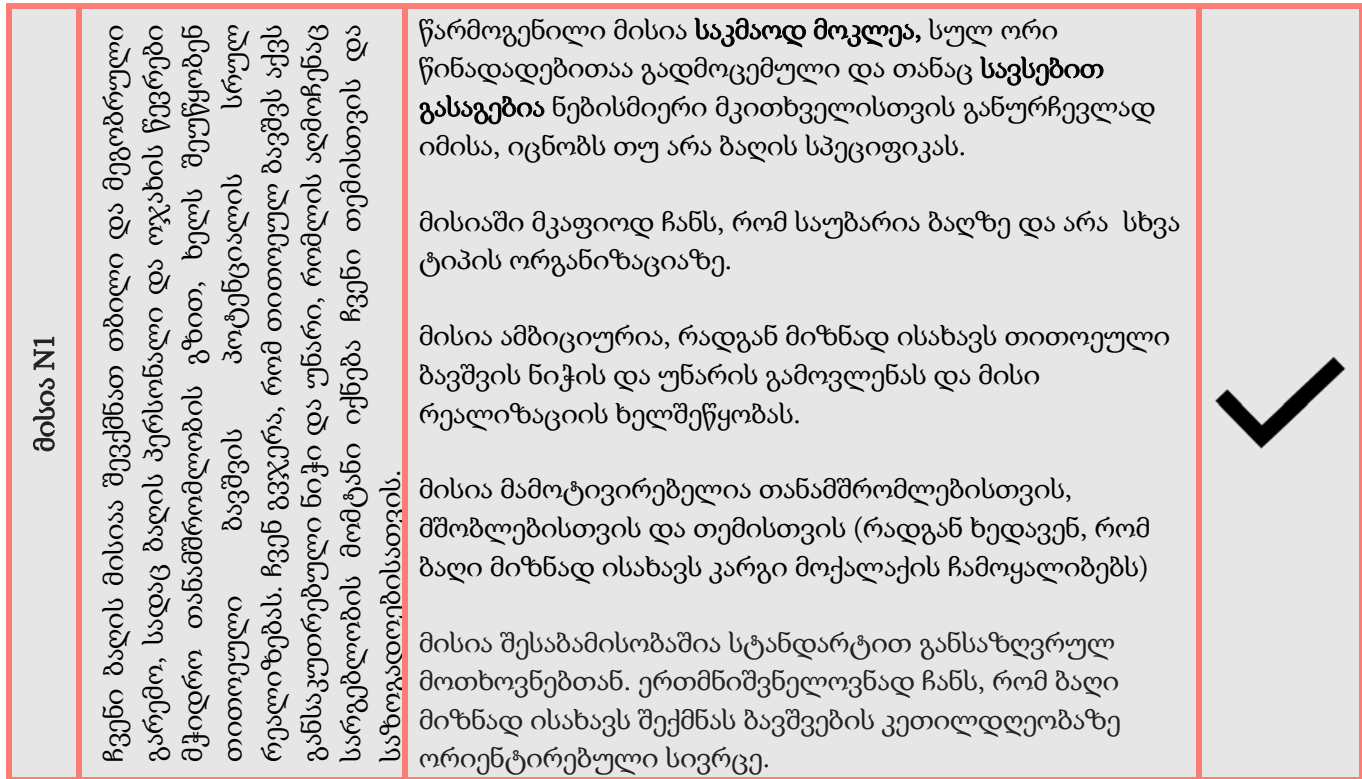 მისია N1
ჩვენი ბაღის მისიაა შევქმნათ თბილი და მეგობრული
გარემო, სადაც ბაღის პერსონალი და ოჯახის წევრები
მჭიდრო თანამშრომლობის გზით, ხელს შეუწყობენ
თითოეული ბავშვის პოტენციალის სრულ
რეალიზებას. ჩვენ გვჯერა, რომ თითოეულ ბავშვს აქვს
განსაკუთრებული ნიჭი და უნარი, რომლის აღმოჩენაც
სარგებლობის მომტანი იქნება ჩვენი თემისთვის და
საზოგადოებისათვის.
წარმოგენილი მისია საკმაოდ მოკლეა, სულ ორი
წინადადებითაა გადმოცემული და თანაც სავსებით
გასაგებია ნებისმიერი მკითხველისთვის განურჩევლად
იმისა, იცნობს თუ არა ბაღის სპეციფიკას.
მისიაში მკაფიოდ ჩანს, რომ საუბარია ბაღზე და არა სხვა
ტიპის ორგანიზაციაზე.
მისია ამბიციურია, რადგან მიზნად ისახავს თითოეული
ბავშვის ნიჭის და უნარის გამოვლენას და მისი
რეალიზაციის ხელშეწყობას.
მისია მამოტივირებელია თანამშრომლებისთვის,
მშობლებისთვის და თემისთვის (რადგან ხედავენ, რომ
ბაღი მიზნად ისახავს კარგი მოქალაქის ჩამოყალიბებს)
მისია შესაბამისობაშია სტანდარტით განსაზღვრულ
მოთხოვნებთან. ერთმნიშვნელოვნად ჩანს, რომ ბაღი
მიზნად ისახავს შექმნას ბავშვების კეთილდღეობაზე
ორიენტირებული სივრცე.